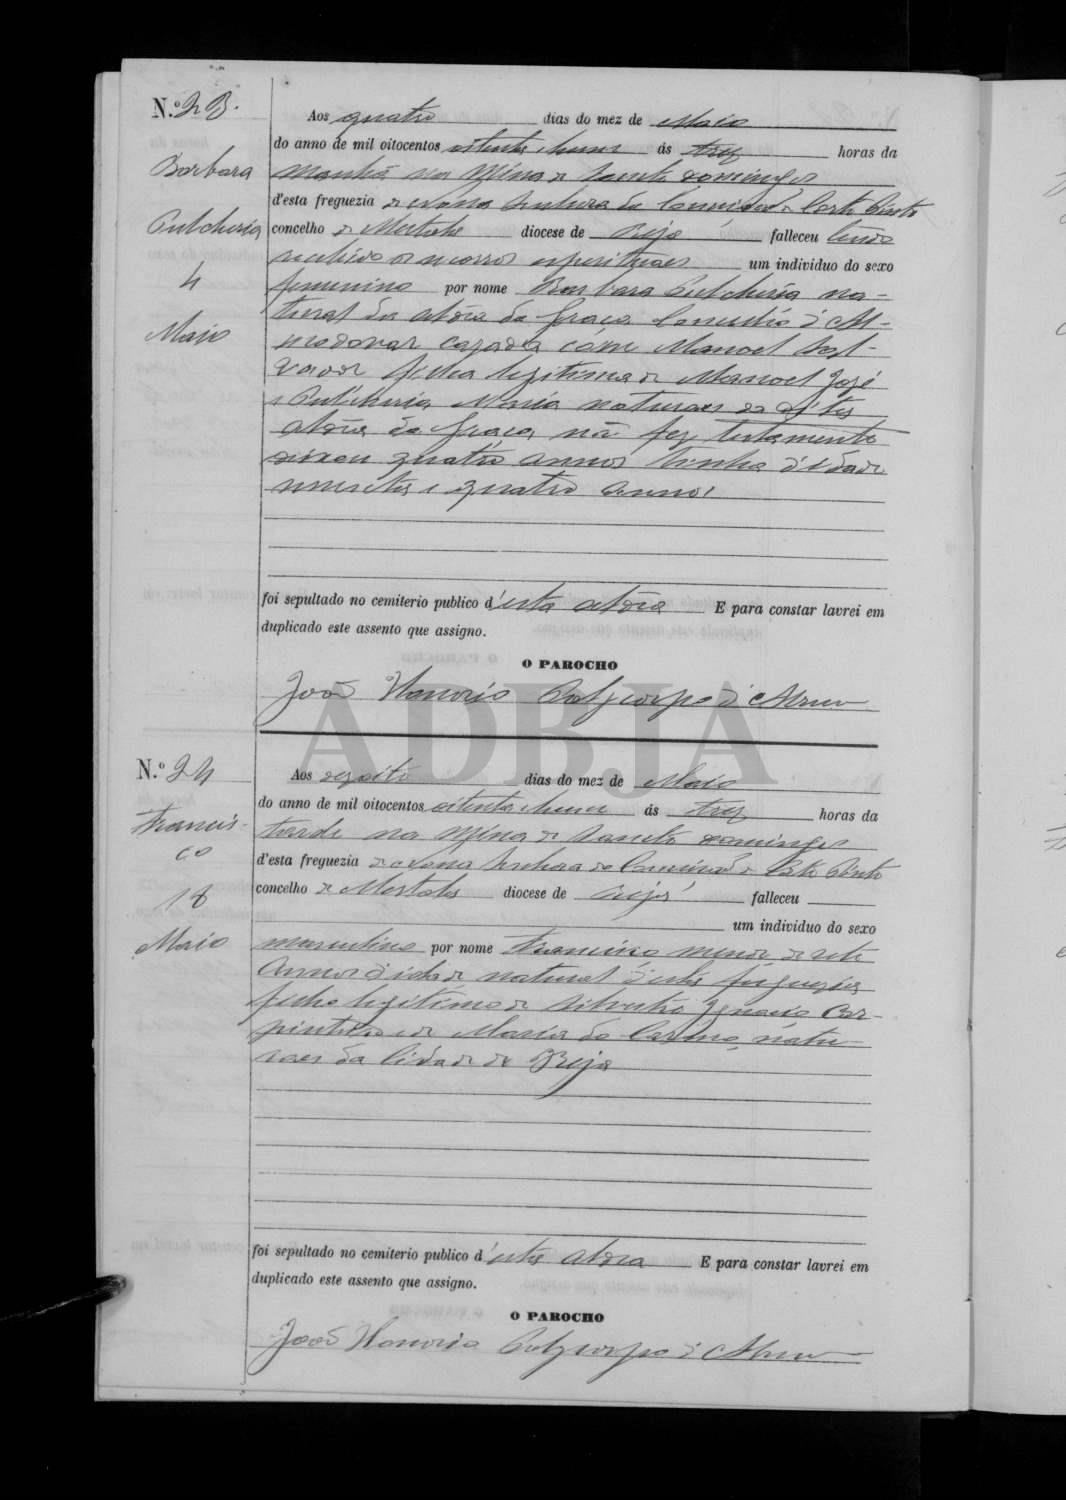 N.º 23.
Aos quatro dias do mez de Maio
do anno de mil oitocentos oitenta e hum ás trez horas da
Barbara
manhã na Mina de Sancto Domingos
d'esta freguezia de Nossa Senhora da Conceição de Corte Pinto
Pulcheria
concelho de Mertola diocese de Beja falleceu tendo
recebido os socorros espirituaes um individuo do sexo
4
femenino por nome Barbara Pulcheria na-
tural da Aldeia da Graça Concelho d'Al-
Maio
modovar cazada com Manoel Sal-
vador filha legitima de Manoel José
e Pulcheria Maria naturaes da dita
Aldeia da Graça, não fez testamento
deixou quatro annos tinha d'idade
e quatro annos
foi sepultado no cemiterio publico d'esta aldeia E para constar lavrei em
duplicado este assento que assigno.
O PAROCHO
João Honorio Polycarpo d'Abreu
ADBJA
N.º 24
Aos dezoito dias do mez de Maio
do anno de mil oitocentos oitenta e hum ás trez horas da
Francis-
tarde na Mina de Sancto Domingos
co
d'esta freguezia de Nossa Senhora da Conceição de Corte Pinto
18
concelho de Mertola diocese de Beja falleceu
um individuo do sexo
Maio
masculino por nome Francisco menor de sete
annos d'idade natural d'esta freguezia
filho legitimo de Silvestre Ignacio Car-
pinteiro e de Maria do Carmo, natu-
raes da Cidade de Beja
foi sepultado no cemiterio publico d'esta aldeia E para constar lavrei em
duplicado este assento que assigno.
O PAROCHO
João Honorio Polycarpo d'Abreu